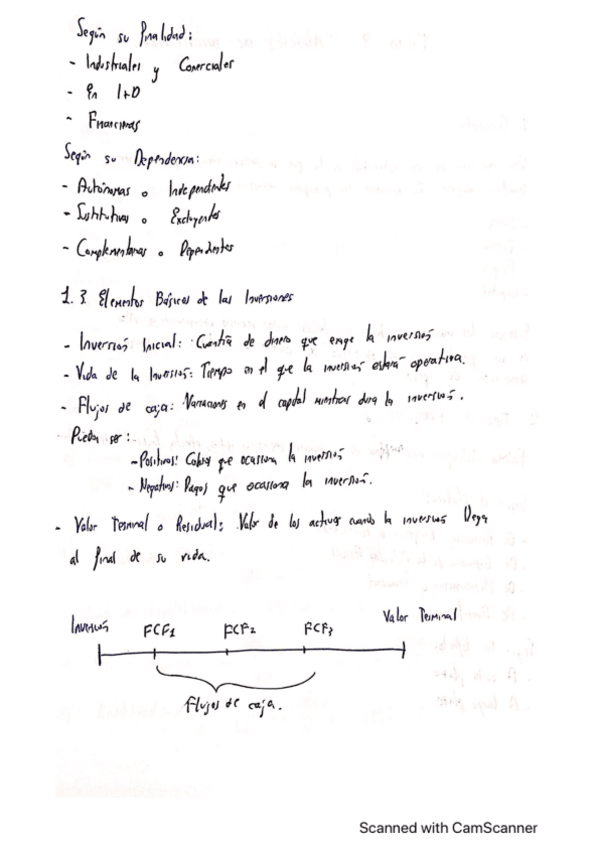 Según su finalidad:
- Industriales y Comerciales
- En I+D
- Financieras
Según su Dependencia:
- Autónomas o Independientes
- Sustitutivas o Excluyentes
- Complementarias o Dependientes
1.3 Elementos Básicos de las Inversiones
- Inversión Inicial: Cuantía de dinero que exige la inversión
- Vida de la Inversión: Tiempo en el que la inversión estará operativa.
- Flujos de caja: Variaciones en el capital mientras dura la inversión.
Pueden ser:
- Positivos: Cobros que ocasiona la inversión
- Negativos: Pagos que ocasiona la inversión.
- Valor Terminal o Residual: Valor de los activos cuando la inversión llega
al final de su vida.
Inversión FCF1 FCF2 FCF3 Valor Terminal
Flujos de caja.
Scanned with CamScanner